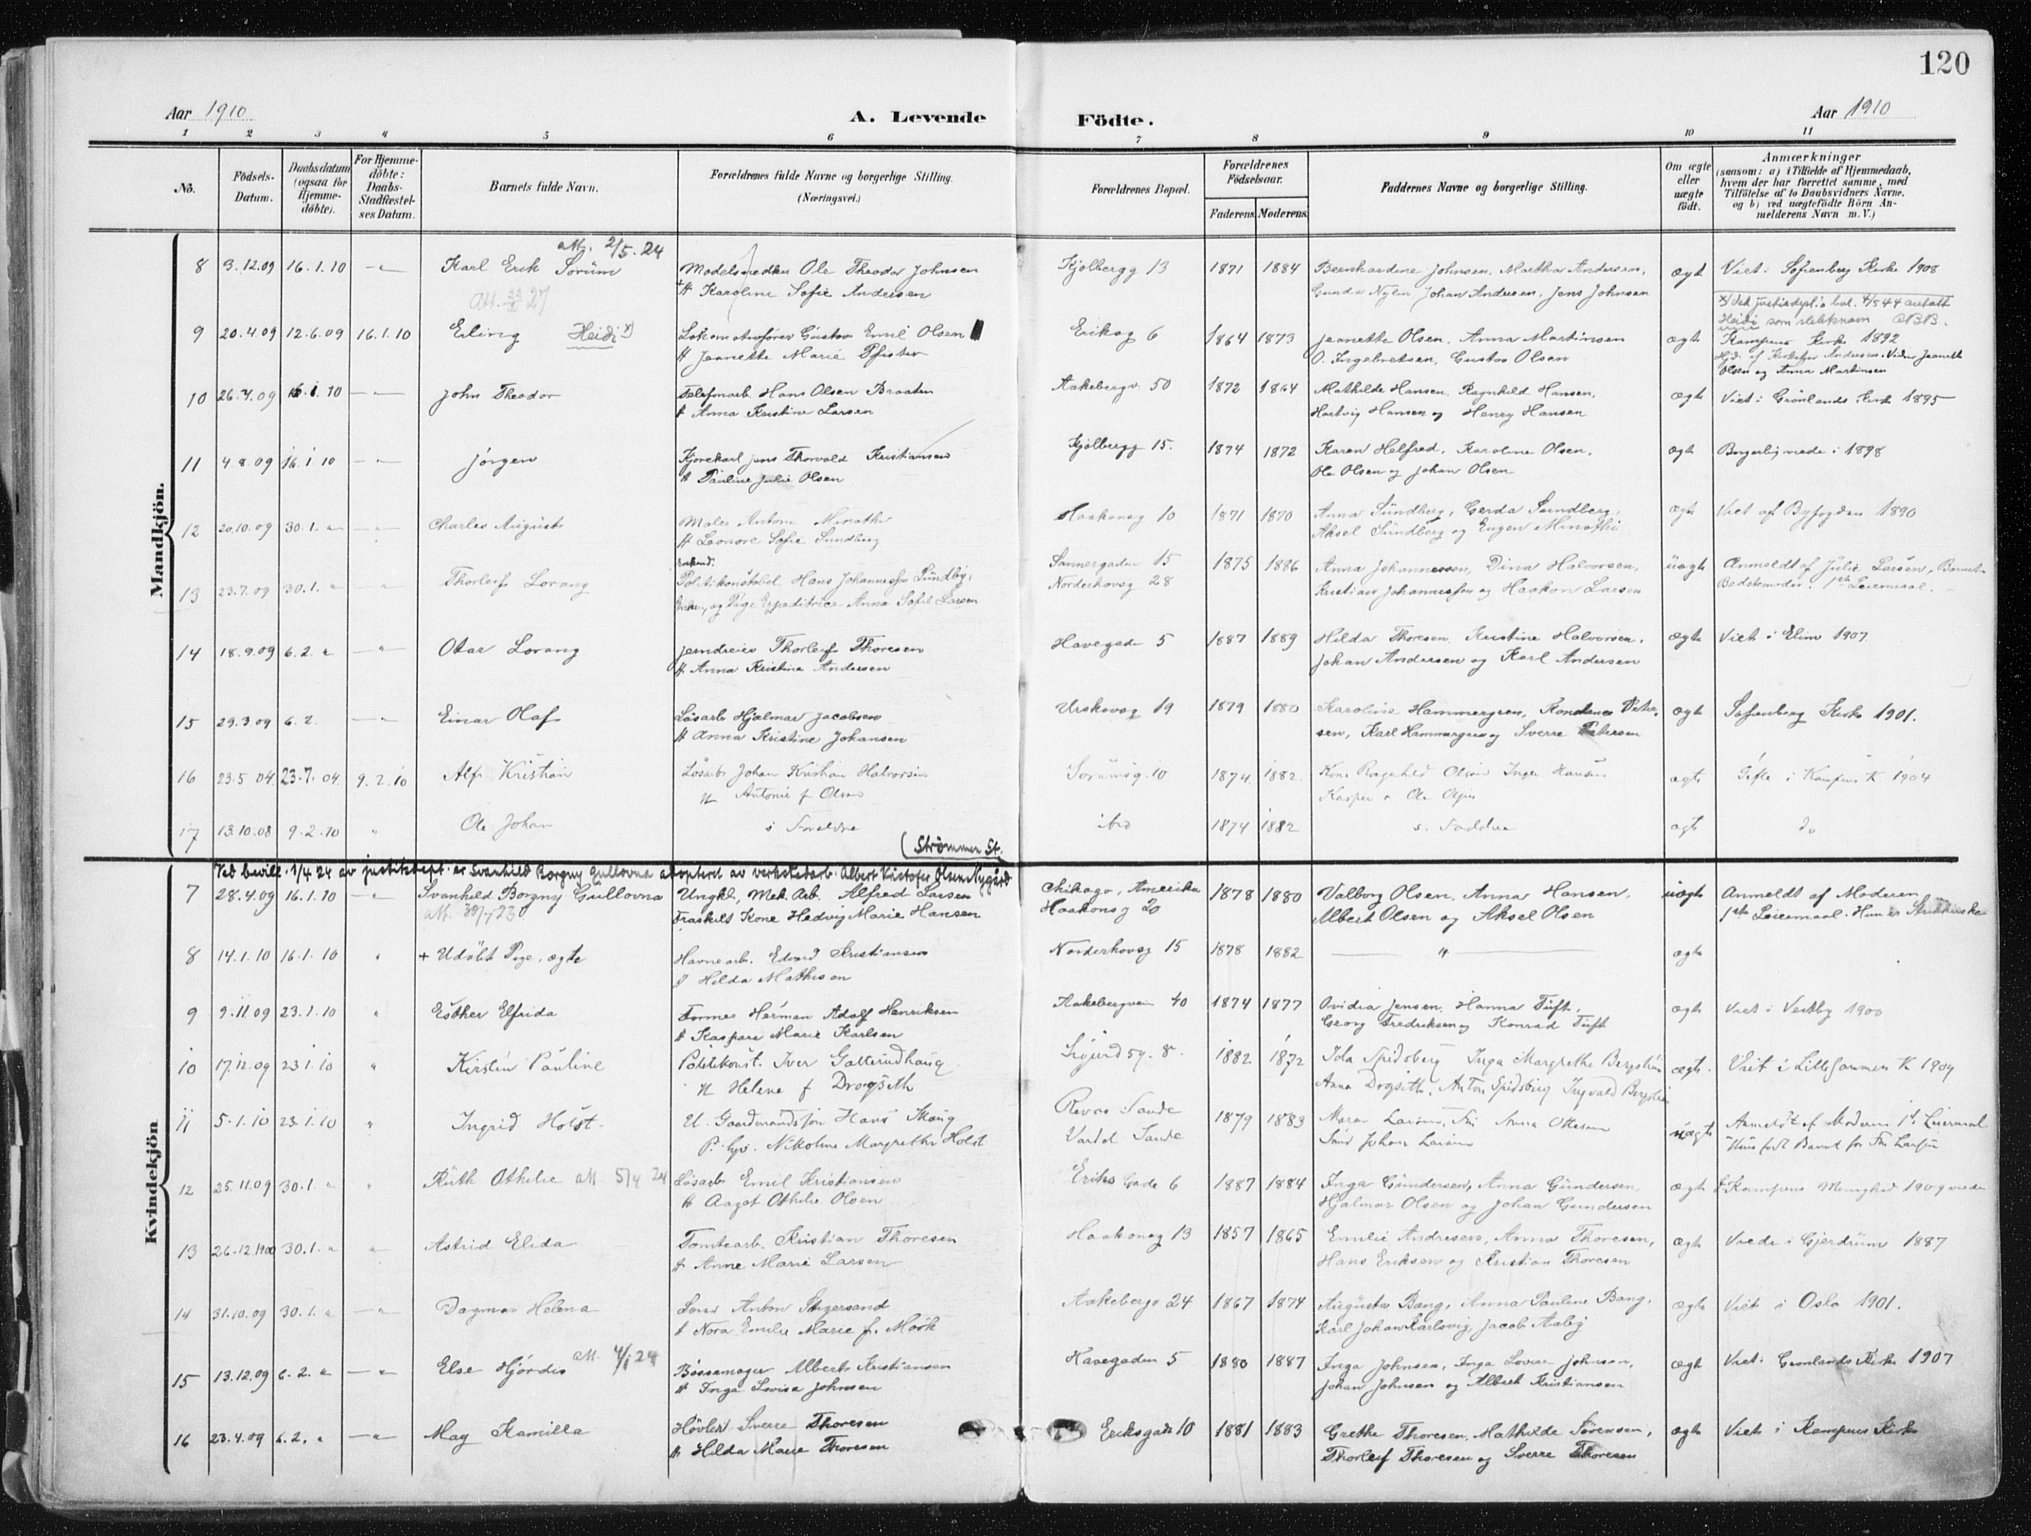 120
Aar 1910
A. Levende Födte.
Aar 1910
1 2 3 4 5 6 7 8 9 10 11
No.
Födsels-Datum.
Daabsdatum (ogsaa for Hjemmedöbte).
For Hjemmedöbte: Daabs-Stadfæstelses Datum.
Barnets fulde Navn.
Forældrenes fulde Navne og borgerlige Stilling. (Næringsvei.)
Forældrenes Bopæl.
Forældrenes Födselsaar.
Faderens Moderens
Faddernes Navne og borgerlige Stilling.
Om ægte eller uægte födt.
Anmærkninger
(saasom: a) i Tilfælde af Hjemmedaab, hvem der har forrettet samme, med Tilföielse af to Daabsvidners Navne, og b) ved uægtefödte Börn Anmelderens Navn m. V.)
Mandkjön.
att. 2/5.24
8 3.12.09 16.1.10 -"- Karl Erik Sörum
Ole Theodor Johnsen
H Karoline Sofie Andersen
Kjølbergg 13 1871 1884
Bernhardine Johnsen, Martha Andersen,
Gunda Nylin, Johan Andersen, Jens Johnsen
ægt Viet i Sofienberg Kirke 1908
9 20.4.09 12.6.09 16.1.10 Eling Heidi x)
Lokomotivfører Gustav Emil Olsen
H Jeanette Marie Pfister
Eriksg 6 1864 1873
Jeanette Olsen, Anna Martinsen
O. Ingebretsen, Gustav Olsen
ægte
Heidi som slektsnavn
Kampens Kirke 1892
Olsen og Anna Martinsen
10 26.7.09 16.1.10 -"- John Theodor
Telefonarb. Hans Olsen Braaten
H Anna Kristine Larsen
Aakebergv. 50 1872 1864
Mathilde Hansen, Ragnhild Hansen,
Hartvig Hansen og Henry Hansen
ægte Viet i Grönlands Kirke 1895
11 4.8.09 16.1.10 -"- Jörgen
Kjørekarl Jens Thorvald Kristiansen
H Pauline Julie Olsen
Kjølbergg 15. 1874 1872
Karen Helfred, Karoline Olsen,
Ole Olsen og Johan Olsen
ægte Borgerlig viede i 1898
12 20.10.09 30.1. " -"- Charles August
Maler Antoni Minothi
H Leonore Sofie Sundberg
Haakonsg 10 1871 1870
Anna Sundberg, Gerda Sundberg,
Aksel Sundberg og Eugen Minothi
ægt Viet af Byfogden 1890
13 23.7.09 30.1. " " Thorleif Lorang
Politikonstabel Hans Johannessen Lundby,
og Pige Expeditrice Anna Sofie Larsen
Sannergaden 15
Norderhovsg 28
1875 1886
Anna Johannessen, Dina Halvorsen,
Kristian Johannessen og Haakon Larsen
uægte Anmeldt af Julie Larsen, Barnets
Bedstemoder. 1ste Leiermaal.
14 18.9.09 6.2. " -"- Otar Lorang
Jerndreier Thorleif Thoresen
H Anna Kristine Andersen
Havegaden 5 1887 1889
Hilda Thoresen, Kristine Halvorsen,
Johan Andersen og Karl Andersen
ægte Viet i Elim 1907
15 29.3.09 6.2. -"- Einar Olaf
Løsarb Hjalmar Jacobsen
H Anna Kristine Johansen
Urskovsg 19 1879 1880
Karoline Hammergren,
sen, Karl Hammergren og Sverre Petersen
ægte Sofienberg Kirke 1901.
16 23.5 04 23.7.04 9.2.10 Alf Kristian
Løsarb Johan Kristian Halvorsen
H Antonie f Olsen
Sorumsg. 10 1874 1882
Kone Ragnhild Olsen Inga Hansen
Kasper &amp; Ole Olsen
ægte Gifte i Kampens K 1904
17 13.10.08 9.2.10 " Ole Johan
s Foreldre
ibid 1874 1882
s. Faddere
ægt do
(Strømmen St.
Kvindekjön
Ved bevill. 1/4 24 av justitsdept. er Svanhild Borgny Gullovna adoptert av verkstedarb. Albert Kristofer Olsen Nygård
7 28.4.09 16.1.10 -"- Svanhild Borgny Gullovna
att. 30/7 23
Ungkl, Mek. Arb. Alfred Larsen
Fraskilt Kone Hedvig Marie Hansen
Chikago, Amerika
Haakonsg 20
1878 1880
Valborg Olsen, Anna Hansen,
Albert Olsen og Aksel Olsen
uægte Anmeldt af Moderen
1ste Leiermaal.
8 14.1.10 16.1.10 " + Udöbt Pige, ægte
Havnearb. Edvard Kristiansen
H Hilda Mathisen
Norderhovsg 15 1878 1882 " ægte
9 9.11.09 23.1.10 " Esther Elfrida
Former Herman Adolf Henriksen
H Kaspara Marie Karlsen
Aakebergveien 40 1874 1877
Ovidia Jensen, Hanna Tuft,
Georg Fredriksen og Konrad Tuft
ægte Viet i Vestby 1900
10 17.12.09 23.1.10 " Kirstin Pauline
Politikonst. Iver Gatterudhaug
H Helene f Drogseth
Sigurdsg. 8. 1882 1872
Ida Spidsberg Inga Margrethe
Anna Drogseth, Anton Spidsberg Ingvald
ægte. Viet i Lillehammer K 1909
11 5.1.10 23.1.10 " Ingrid Holst.
U. Gaardmandssön Hans Skaug
P. Nikoline Margrethe Holst
Sande
Sande
1879 1883
Maren Larsen, Anna Ottesen
Johan Larsen
uægte Anmeldt af Moderen 1st Leiermaal
12 25.11.09 30.1. " " Ruth Othilie att. 5/4 24
Løsarb Emil Kristiansen
H Aagot Othilie Olsen
Eriks Gade 6 1887 1884
Inga Gundersen, Anna Gundersen,
Hjalmar Olsen og Johan Gundersen
ægte Kampens Menighed 1909 viede
13 26.12.1900 30.1. " " Astrid Elida
Tomtearb. Kristian Thoresen
H Anne Marie Larsen
Haakonsg 13 1857 1865
Emilie Andresen, Anna Thoresen,
Hans Eriksen og Kristian Thoresen
ægte Viede i Gjerdrum 1887
14 31.10.09 30.1. " -"- Dagmar Helena
Anton Stigersand
H Nora Emilie Marie f. Mörk
Aakebergv 24 1867 1874
Augusta Bang, Anna Pauline Bang,
Karl Johan Karlsvig, Jacob Aaby
ægte Viet i Oslo 1901.
15 13.12.09 6.2. " -"- Else Hjördis att. 4/1 24
Bössemager Albert Kristiansen
H Inga Lovisa Johnsen
Havegaden 5 1880 1887
Inga Johnsen, Inga Lovise Johnsen,
Johan Johnsen og Albert Kristiansen
ægte Viet i Grønlands Kirke 1907
16 23.4.09 6.2. " -"- May Kamilla
Høvler Sverre Thoresen
H Hilda Marie Thoresen
Eriksgade 10 1881 1883
Grethe Thoresen, Mathilde Sörensen,
Thorleif Thoresen og Sverre Thoresen
ægte Viet i Kampens Kirke